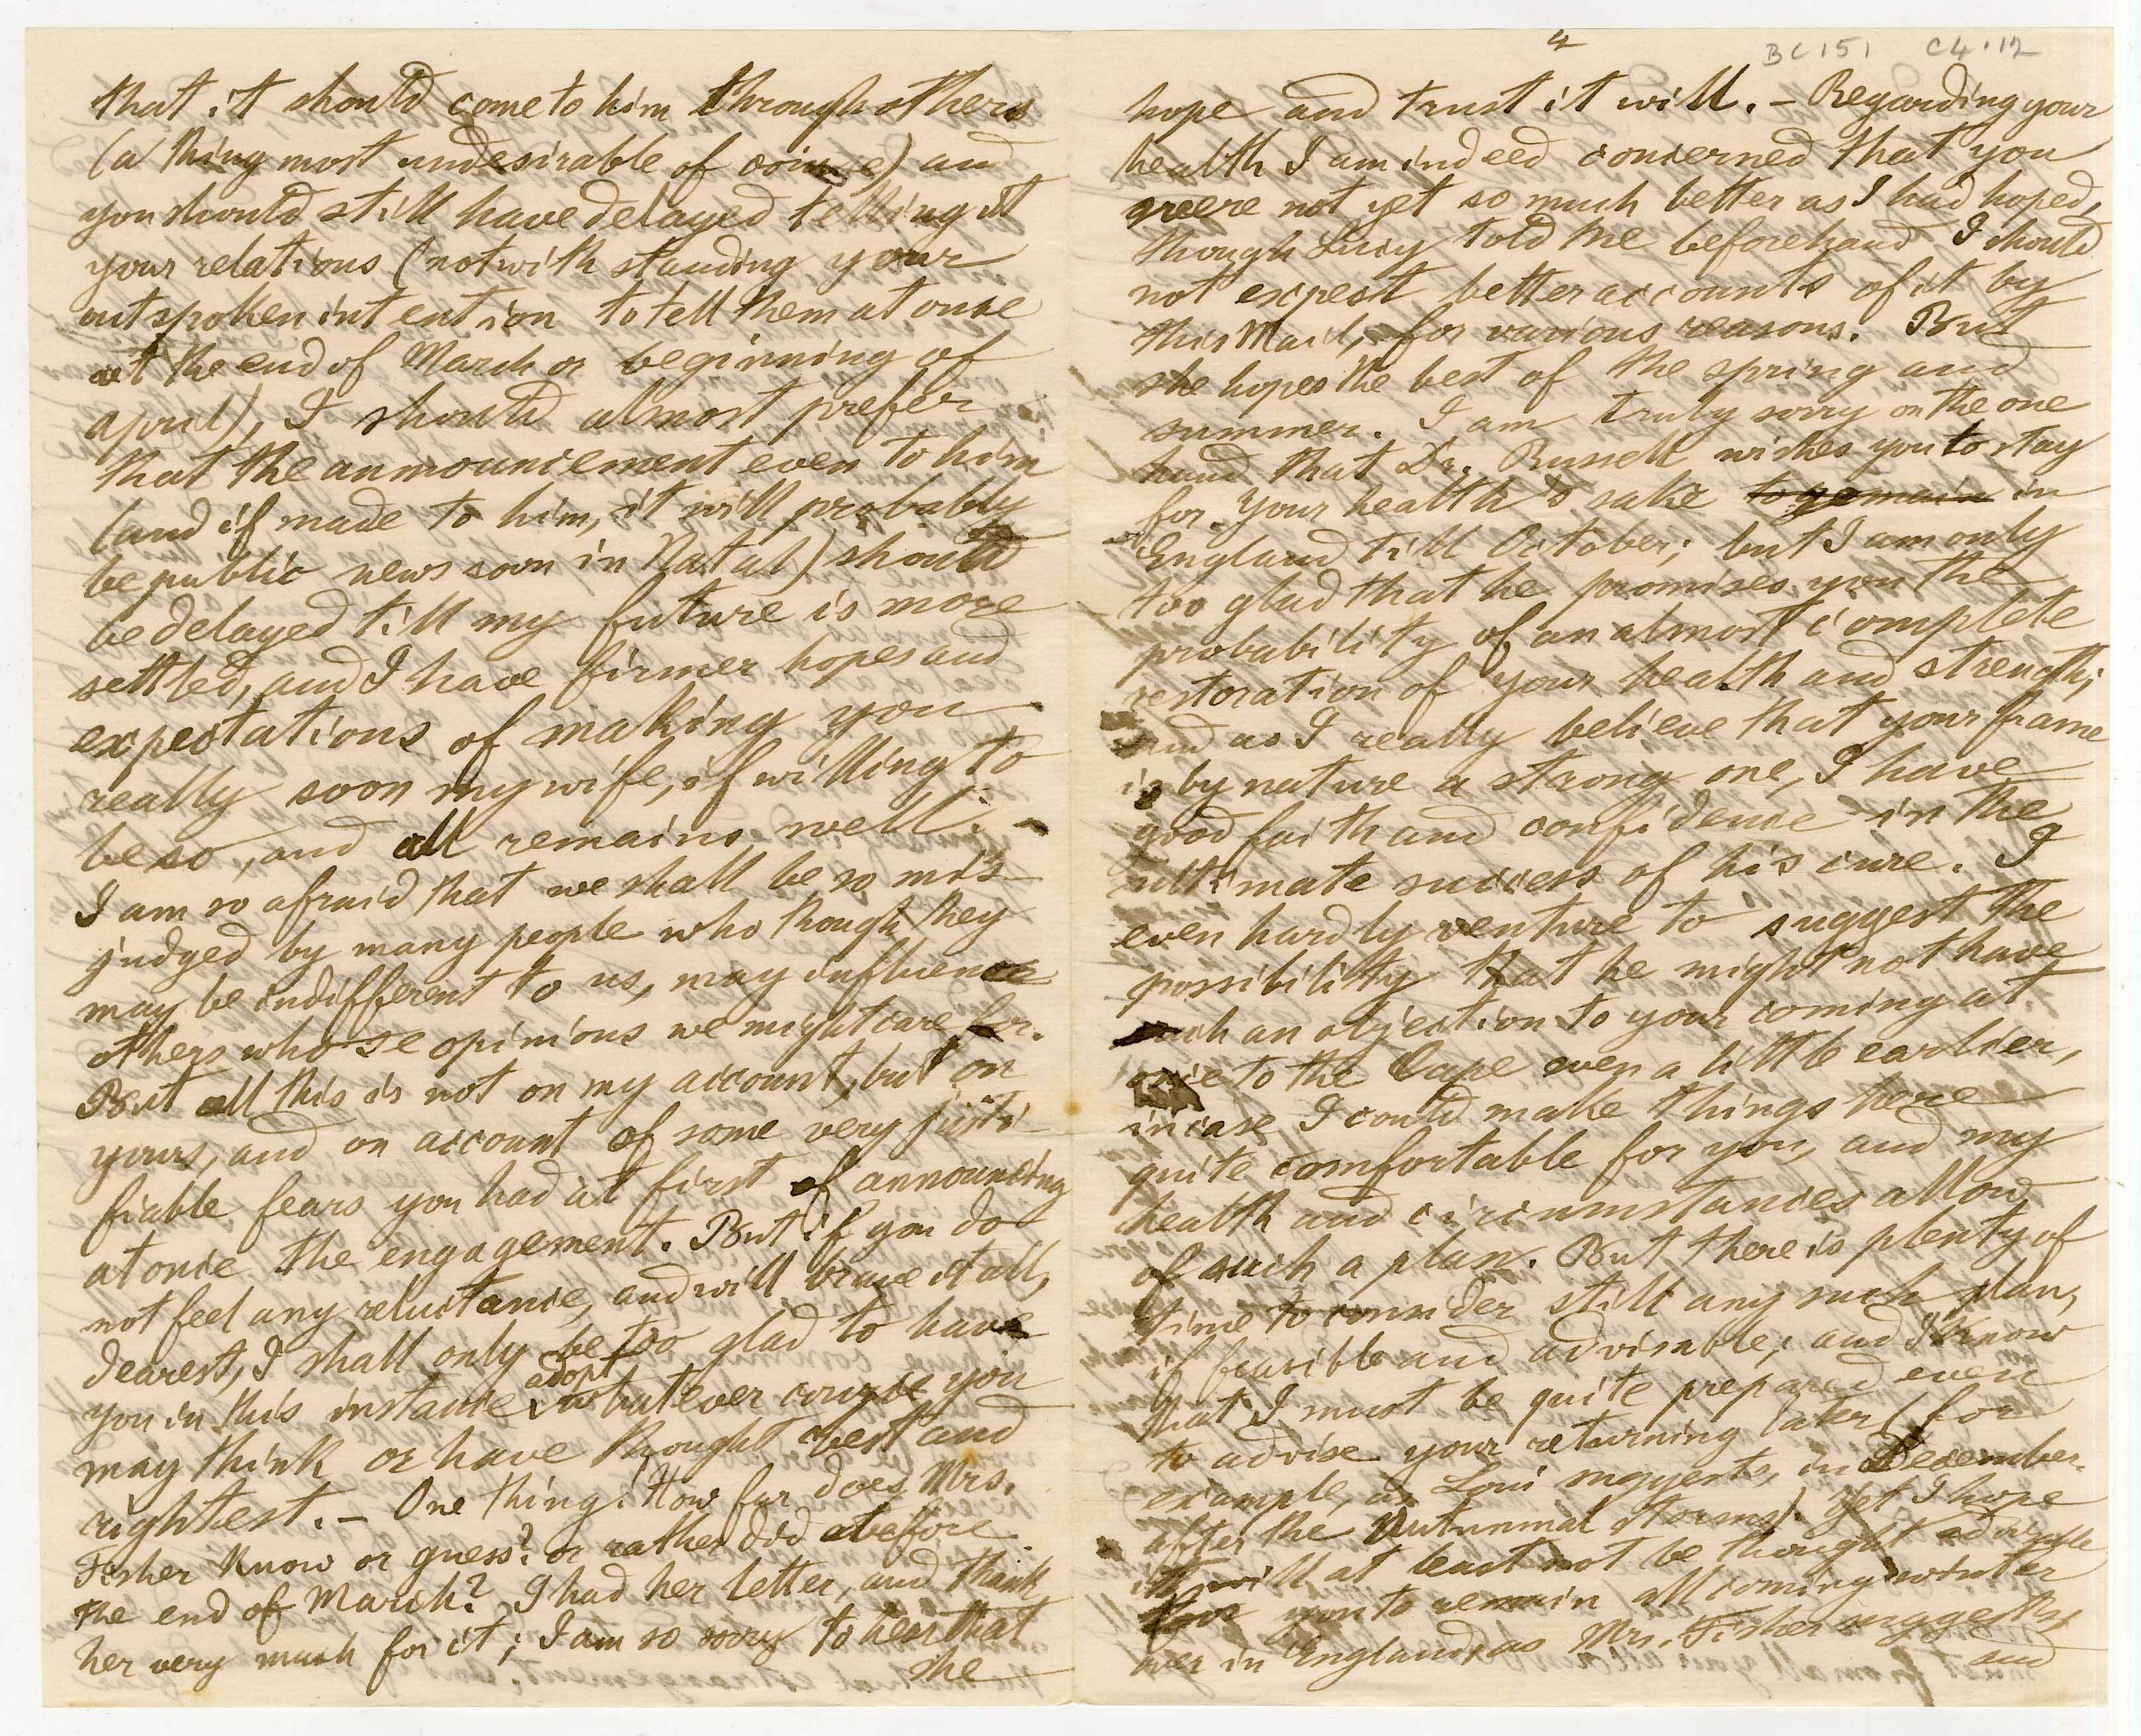 that it should come to him through others
(a thing most undesirable of course) and
you should still have delayed telling it
your relations (notwithstanding your
outspoken intention to tell them at once
at the end of March or beginning of
April), I should almost prefer
that the announcement even to him
(and if made to him, it will probably
be public news soon in Natal) should
be delayed till my future is more
settled, and I have firmer hopes and
expectations of making you
really soon my wife, if willing to
be so, and all remains well.
I am so afraid that we shall be so mis-
judged by many people who though they
may be indifferent to us, may influence
others whose opinions we might care for.
But all this is not on my account, but on
yours, and on account of some very justi-
fiable fears you had at first of announcing
at once the engagement. But if you do
not feel any reluctance, and will brave it all,
dearest, I shall only be too glad to have
you in this instance adopt whatever course you
may think or have thought best and
rightest. – One thing: How far does Mrs.
Fisher know or guess? or rather did at before
the end of March? I had her letter, and thank
her very much for it; I am so sorry to hear that
she
4
BC 151 C4.12
hope and trust it will. – Regarding your
health I am indeed concerned that you
were not yet so much better as I had hoped,
though Lucy told me beforehand I should
not expect better accounts of it by
this Mail, for various reasons. But
she hopes the best of the spring and
summer. I am truly sorry on the one
hand that Dr. Russell wishes you to stay
for your health's sake to remain in
England till October; but I am only
too glad that he promises you the
probability of an almost complete
restoration of your health and strength;
and as I really believe that your frame
is by nature a strong one, I have
good faith and confidence in the
ultimate success of his cure. I
even hardly venture to suggest the
possibility that he might not have
such an objection to your coming at
once to the Cape even a little earlier,
in case I could make things here
quite comfortable for you, and my
health and circumstances allow
of such a plan. But there is plenty of
time to consider still any such plan,
if feasible and advisable; and I know
that I must be quite prepared even
to advise your returning later (for
example, as Loui suggests, in December
after the Autumnal storms). Yet I hope
it will at least not be thought advisable
for you to remain all coming winter
over in England, as Mrs. Fisher suggests,
and